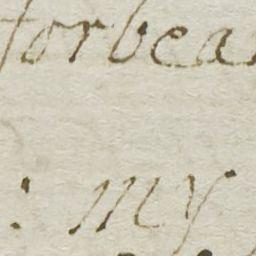 forbea
: my